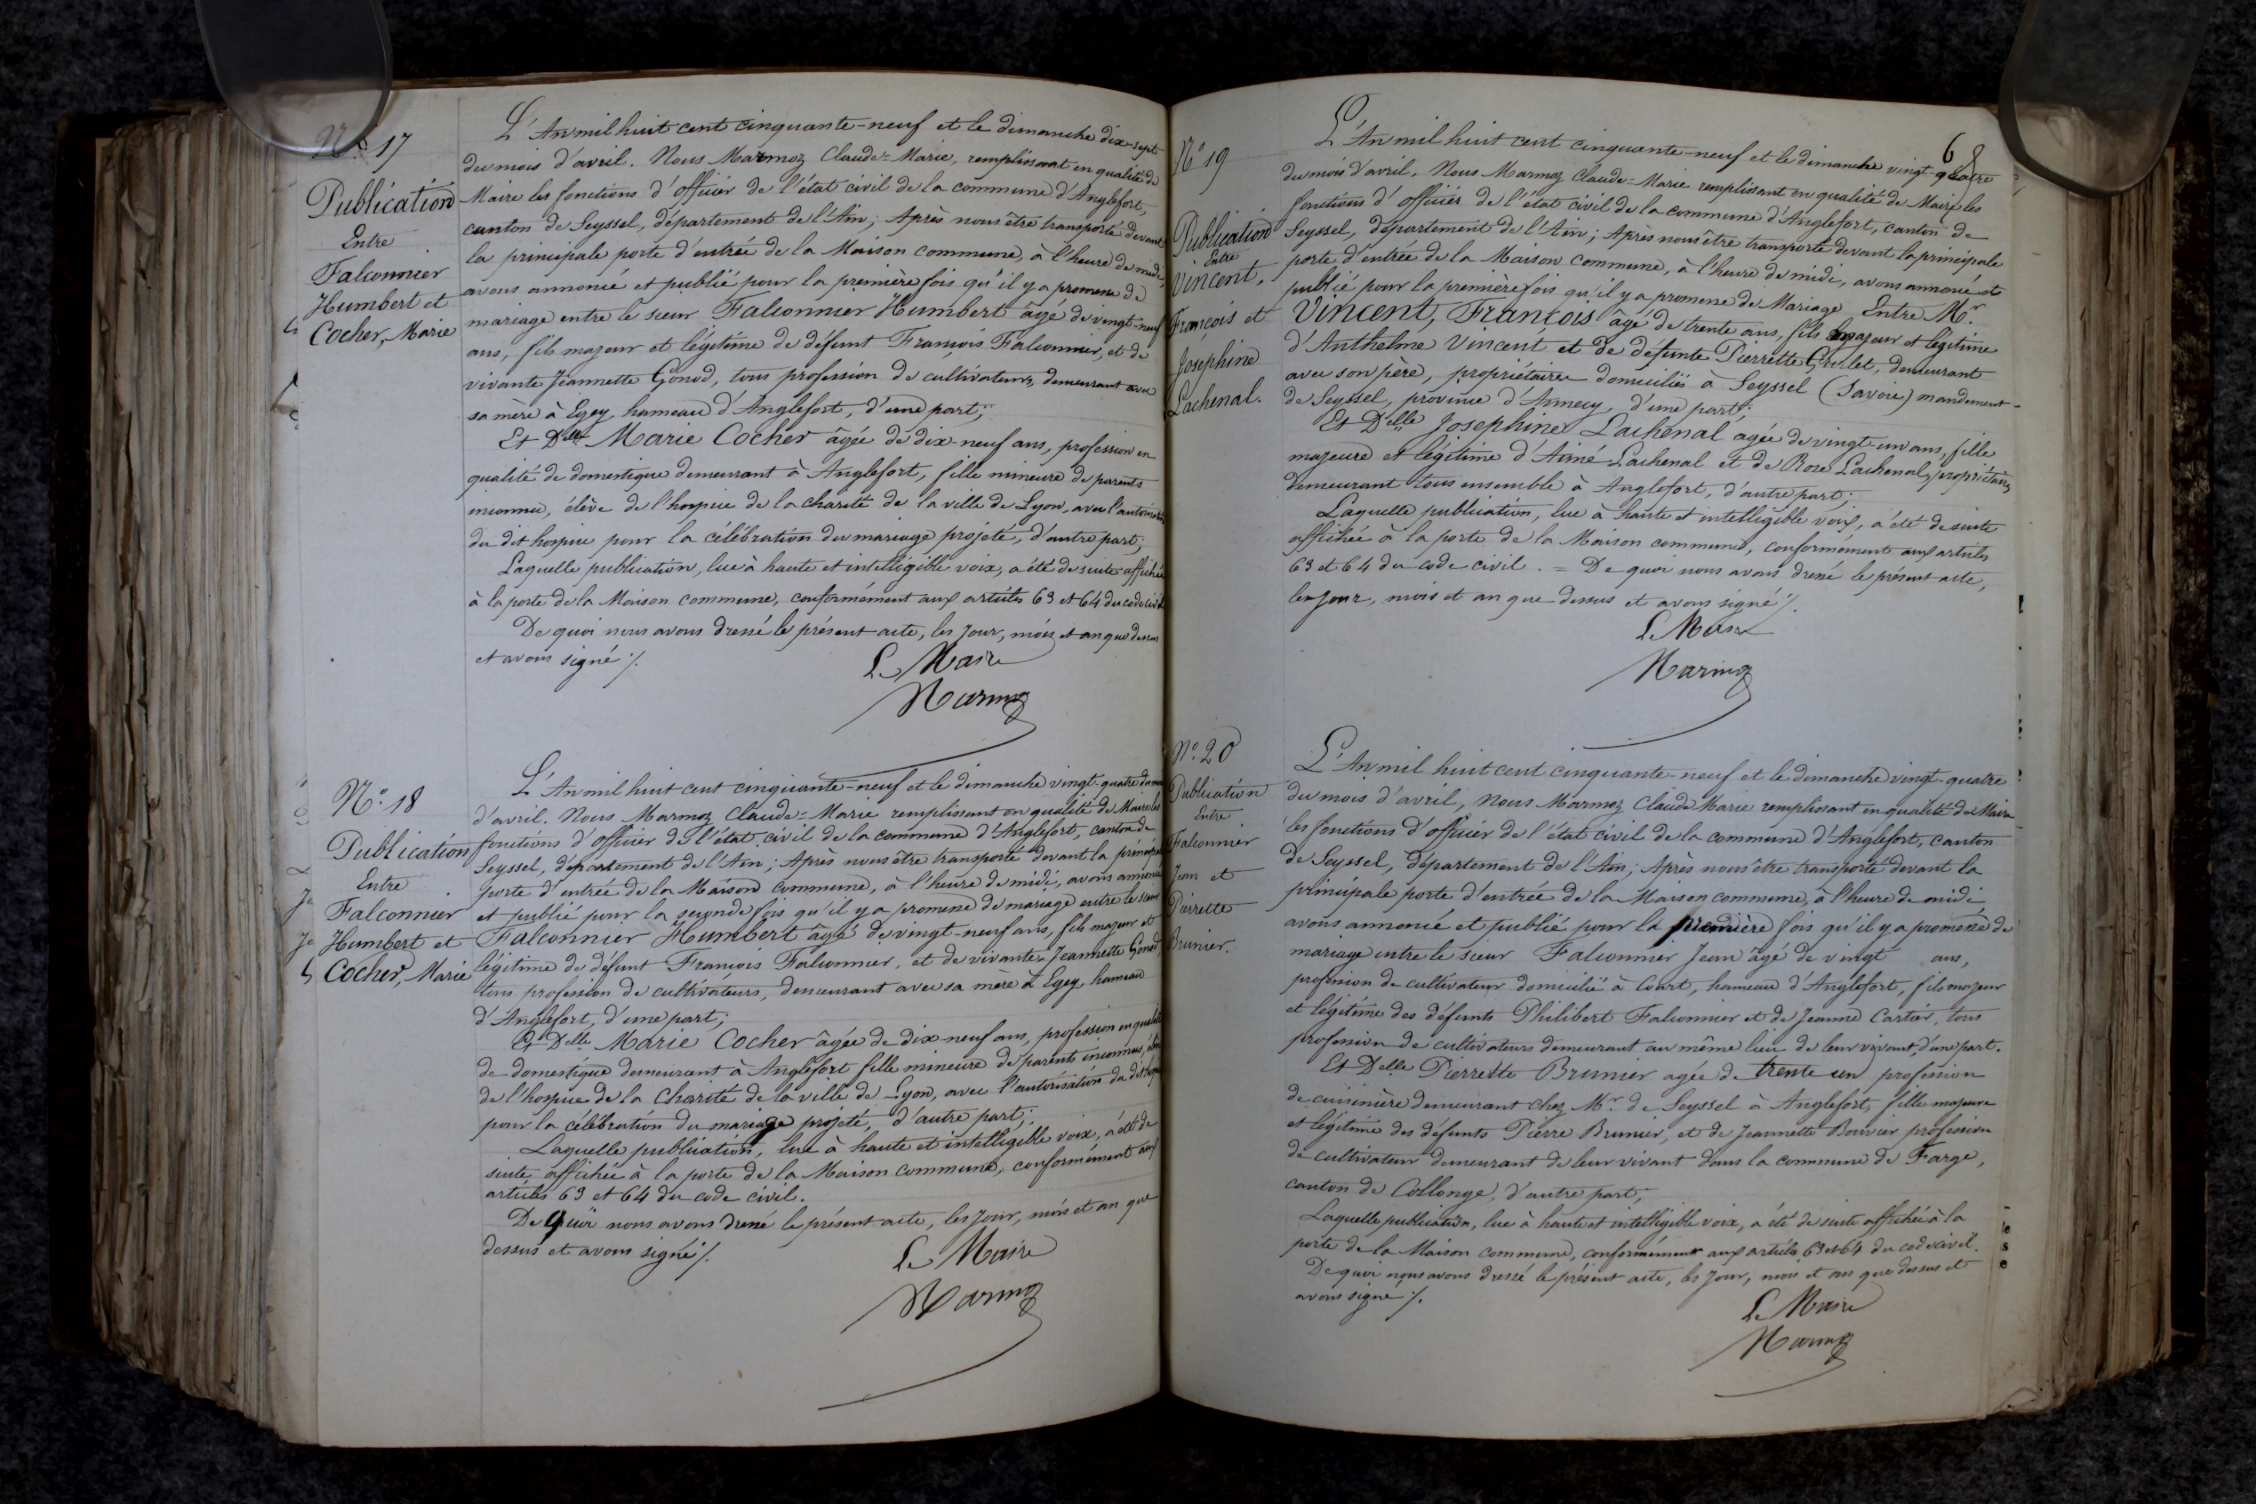 N° 17
Publication
Entre
Falconnier
Humbert et
Cocher, Marie
L'An mil huit cent cinquante-neuf et le dimanche dix-sept
du mois d'avril. Nous Marmoz Claude-Marie, remplissant en qualité de
Maire les fonctions d'officier de l'état civil de la commune d'Anglefort,
canton de Seyssel, département de l'Ain; Après nous être transporté devant
la principale porte d'entrée de la Maison commune, à l'heure de midi,
avons annoncé et publié pour la première fois qu'il y a promesse de
mariage entre le sieur Falconnier Humbert âgé de vingt-neuf
ans, fils majeur et légitime de défunt François Falconnier, et de
vivante Jeannette Gonod, tous profession de cultivateurs, demeurant avec
sa mère à Egey, hameau d'Anglefort, d'une part;
Et Delle Marie Cocher âgée de dix-neuf ans, profession en
qualité de domestique demeurant à Anglefort, fille mineure de parents
inconnu, élève de l'hospice de la charité de la ville de Lyon, avec l'autorisation
du dit hospice pour la célébration du mariage projeté, d'autre part;
Laquelle publication, lue à haute et intelligible voix, a été de suite affichée
à la porte de la Maison commune, conformément aux articles 63 et 64 du code civil.
De quoi nous avons dressé le présent acte, les jour, mois et an que dessus
et avons signé ./.
Le Maire
Marmoz
N° 18
Publication
Entre
Falconnier
Humbert et
Cocher, Marie
L'An mil huit cent cinquante-neuf et le dimanche vingt-quatre du mois
d'avril. Nous Marmoz Claude-Marie remplissant en qualité de Maire les
fonctions d'officier de l'état civil de la commune d'Anglefort, canton de
Seyssel, département de l'Ain; Après nous être transporté devant la principale
porte d'entrée de la Maison commune, à l'heure de midi, avons annoncé
et publié pour la seconde fois qu'il y a promesse de mariage entre le sieur
Falconnier Humbert âgé de vingt-neuf ans, fils majeur et
légitime de défunt François Falconnier, et de vivante Jeannette Gonod,
tous profession de cultivateurs, demeurant avec sa mère à Egey, hameau
d'Anglefort, d'une part;
Et Delle Marie Cocher âgée de dix-neuf ans, profession en qualité
de domestique demeurant à Anglefort fille mineure de parents inconnus, élève
de l'hospice de la Charité de la ville de Lyon, avec l'autorisation du dit hospice
pour la célébration du mariage projeté, d'autre part;
Laquelle publication, lue à haute et intelligible voix, a été de
suite affichée à la porte de la Maison commune, conformément aux
articles 63 et 64 du code civil.
De quoi nous avons dressé le présent acte, les jour, mois et an que
dessus et avons signé ./.
Le Maire
Marmoz
N° 19
Publication
Entre
Vincent,
François et
Josephine
Lachenal.
L'An mil huit cent cinquante-neuf et le dimanche vingt-quatre
du mois d'avril, Nous Marmoz Claude-Marie remplissant en qualité de Maire les
fonctions d'officier de l'état civil de la commune d'Anglefort, canton de
Seyssel, département de l'Ain; Après nous être transporté devant la principale
porte d'entrée de la Maison commune, à l'heure de midi, avons annoncé et
publié pour la première fois qu'il y a promesse de Mariage Entre Mr
Vincent, François âgé de trente ans, fils majeur et légitime
d'Anthelme Vincent et de défunte Pierrette demeurant
avec son père, propriétaires domiciliés à Seyssel (Savoie) mandement
de Seyssel, province d'Annecy, d'une part;
Et Delle Josephine Lachenal agée de vingt-un ans, fille
majeure et légitime d'Aimé Lachenal et de Rose Lachenal, propriétaires
demeurant tous ensemble à Anglefort, d'autre part;
Laquelle publication, lue à haute et intelligible voix, a été de suite
affichée à la porte de la Maison commune, conformément aux articles
63 et 64 du code civil. = De quoi nous avons dressé le présent acte,
les jour, mois et an que dessus et avons signé ./.
Le Maire
Marmoz
N° 20
Publication
Entre
Falconnier
Jean et
Pierrette
Brunier.
L'An mil huit cent cinquante-neuf et le dimanche vingt-quatre
du mois d'avril, Nous Marmoz Claude Marie remplissant en qualité de Maire
les fonctions d'officier de l'état civil de la commune d'Anglefort, canton
de Seyssel, département de l'Ain; Après nous être transporté devant la
principale porte d'entrée de la Maison commune, à l'heure de midi
avons annoncé et publié pour la première fois qu'il y a promesse de
mariage entre le sieur Falconnier Jean âgé de vingt ans,
profession de cultivateur domicilié à Coart, hameau d'Anglefort, fils majeur
et légitime des défunts Philibert Falconnier et de Jeanne Cartier, tous
profession de cultivateurs demeurant au même lieu de leur vivant, d'une part.
Et Delle Pierrette Brunier agée de trente un profession
de cuisinière demeurant chez Mr de Seyssel à Anglefort, fille majeure
et légitime des défunts Pierre Brunier, et de Jeannette Bouvier profession
de cultivateur demeurant de leur vivant dans la commune de Farge,
canton de Collonge, d'autre part;
Laquelle publication, lue à haute et intelligible voix, a été de suite affichée à la
porte de la Maison commune, conformément aux articles 63 et 64 du code civil.
De quoi nous avons dressé le présent acte, les jour, mois et an que dessus et
avons signé ./.
Le Maire
Marmoz